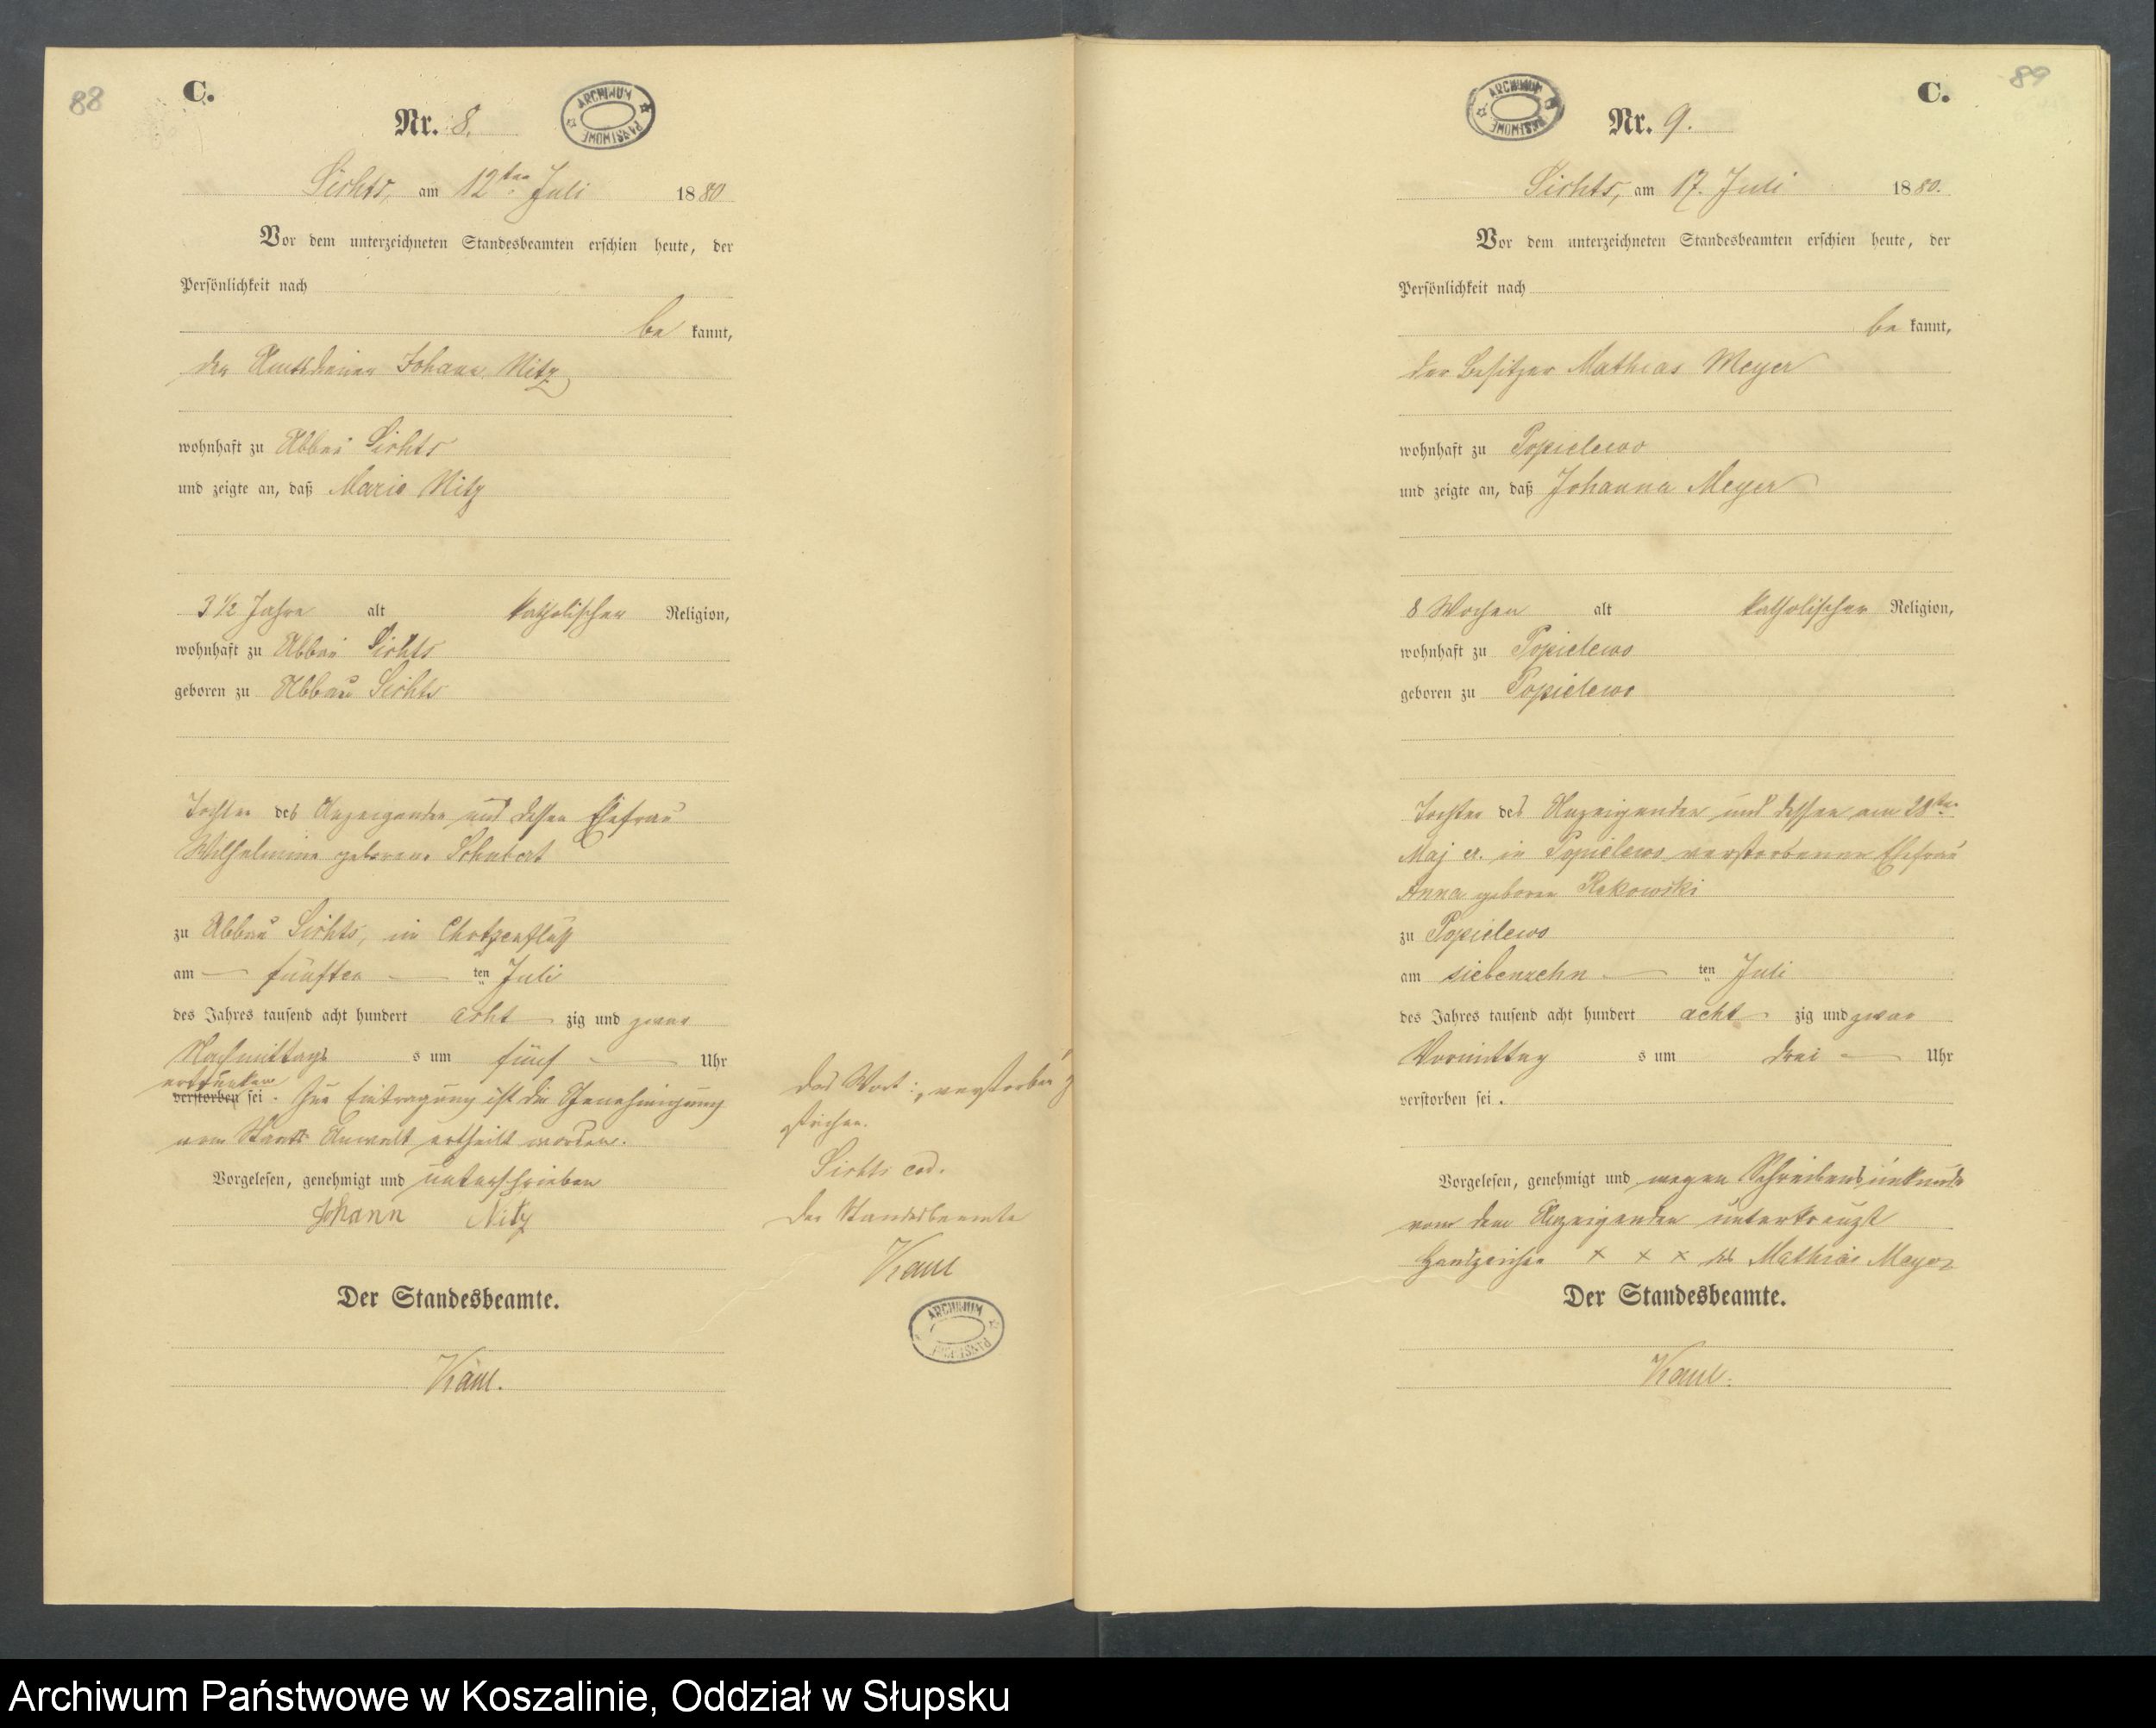 88
C.
Nr. 8.
ARCHIWUM PAŃSTWOWE
Lichts, am 12ten Juli 1880
Vor dem unterzeichneten Standesbeamten erschien heute, der
Persönlichkeit nach
be kannt,
der Amtsdiener Johann Nitz
wohnhaft zu Abbau Lichts
und zeigte an, daß Marie Nitz
3 1/2 Jahre alt katholischer Religion,
wohnhaft zu Abbau Lichts
geboren zu Abbau Lichts
Tochter des Anzeigenden und dessen Ehefrau
Wilhelmine geborene Schubert
zu Abbau Lichts, im Chotzenfluß
am fünften ten Juli
des Jahres tausend acht hundert acht zig und zwar
Nachmittags s um fünf Uhr
ertrunken
verstorben sei. Zur Eintragung ist die Genehmigung
vom Staats Anwalt ertheilt worden.
Vorgelesen, genehmigt und unterschrieben
Johann Nitz
Der Standesbeamte.
Kaul.
Das Wort: "verstorben" g
strichen.
Lichts eod.
Der Standesbeamte
Kaul
ARCHIWUM PAŃSTWOWE
89
C.
ARCHIWUM PAŃSTWOWE
Nr. 9.
Lichts, am 17. Juli 1880.
Vor dem unterzeichneten Standesbeamten erschien heute, der
Persönlichkeit nach
be kannt,
der Besitzer Mathias Meyer
wohnhaft zu Popielewo
und zeigte an, daß Johanna Meyer
8 Wochen alt katholischer Religion,
wohnhaft zu Popielewo
geboren zu Popielewo
Tochter des Anzeigenden und dessen am 28ten
Maj cr. in Popielewo verstorbenen Ehefrau
Anna geboren Rekowski
zu Popielewo
am siebenzehn ten Juli
des Jahres tausend acht hundert acht zig und zwar
Vormittag s um drei Uhr
verstorben sei.
Vorgelesen, genehmigt und wegen Schreibensunkunde
von dem Anzeigenden unterkreuzt
Handzeichen x x x des Mathias Meyer
Der Standesbeamte.
Kaul.
Archiwum Państwowe w Koszalinie, Oddział w Słupsku